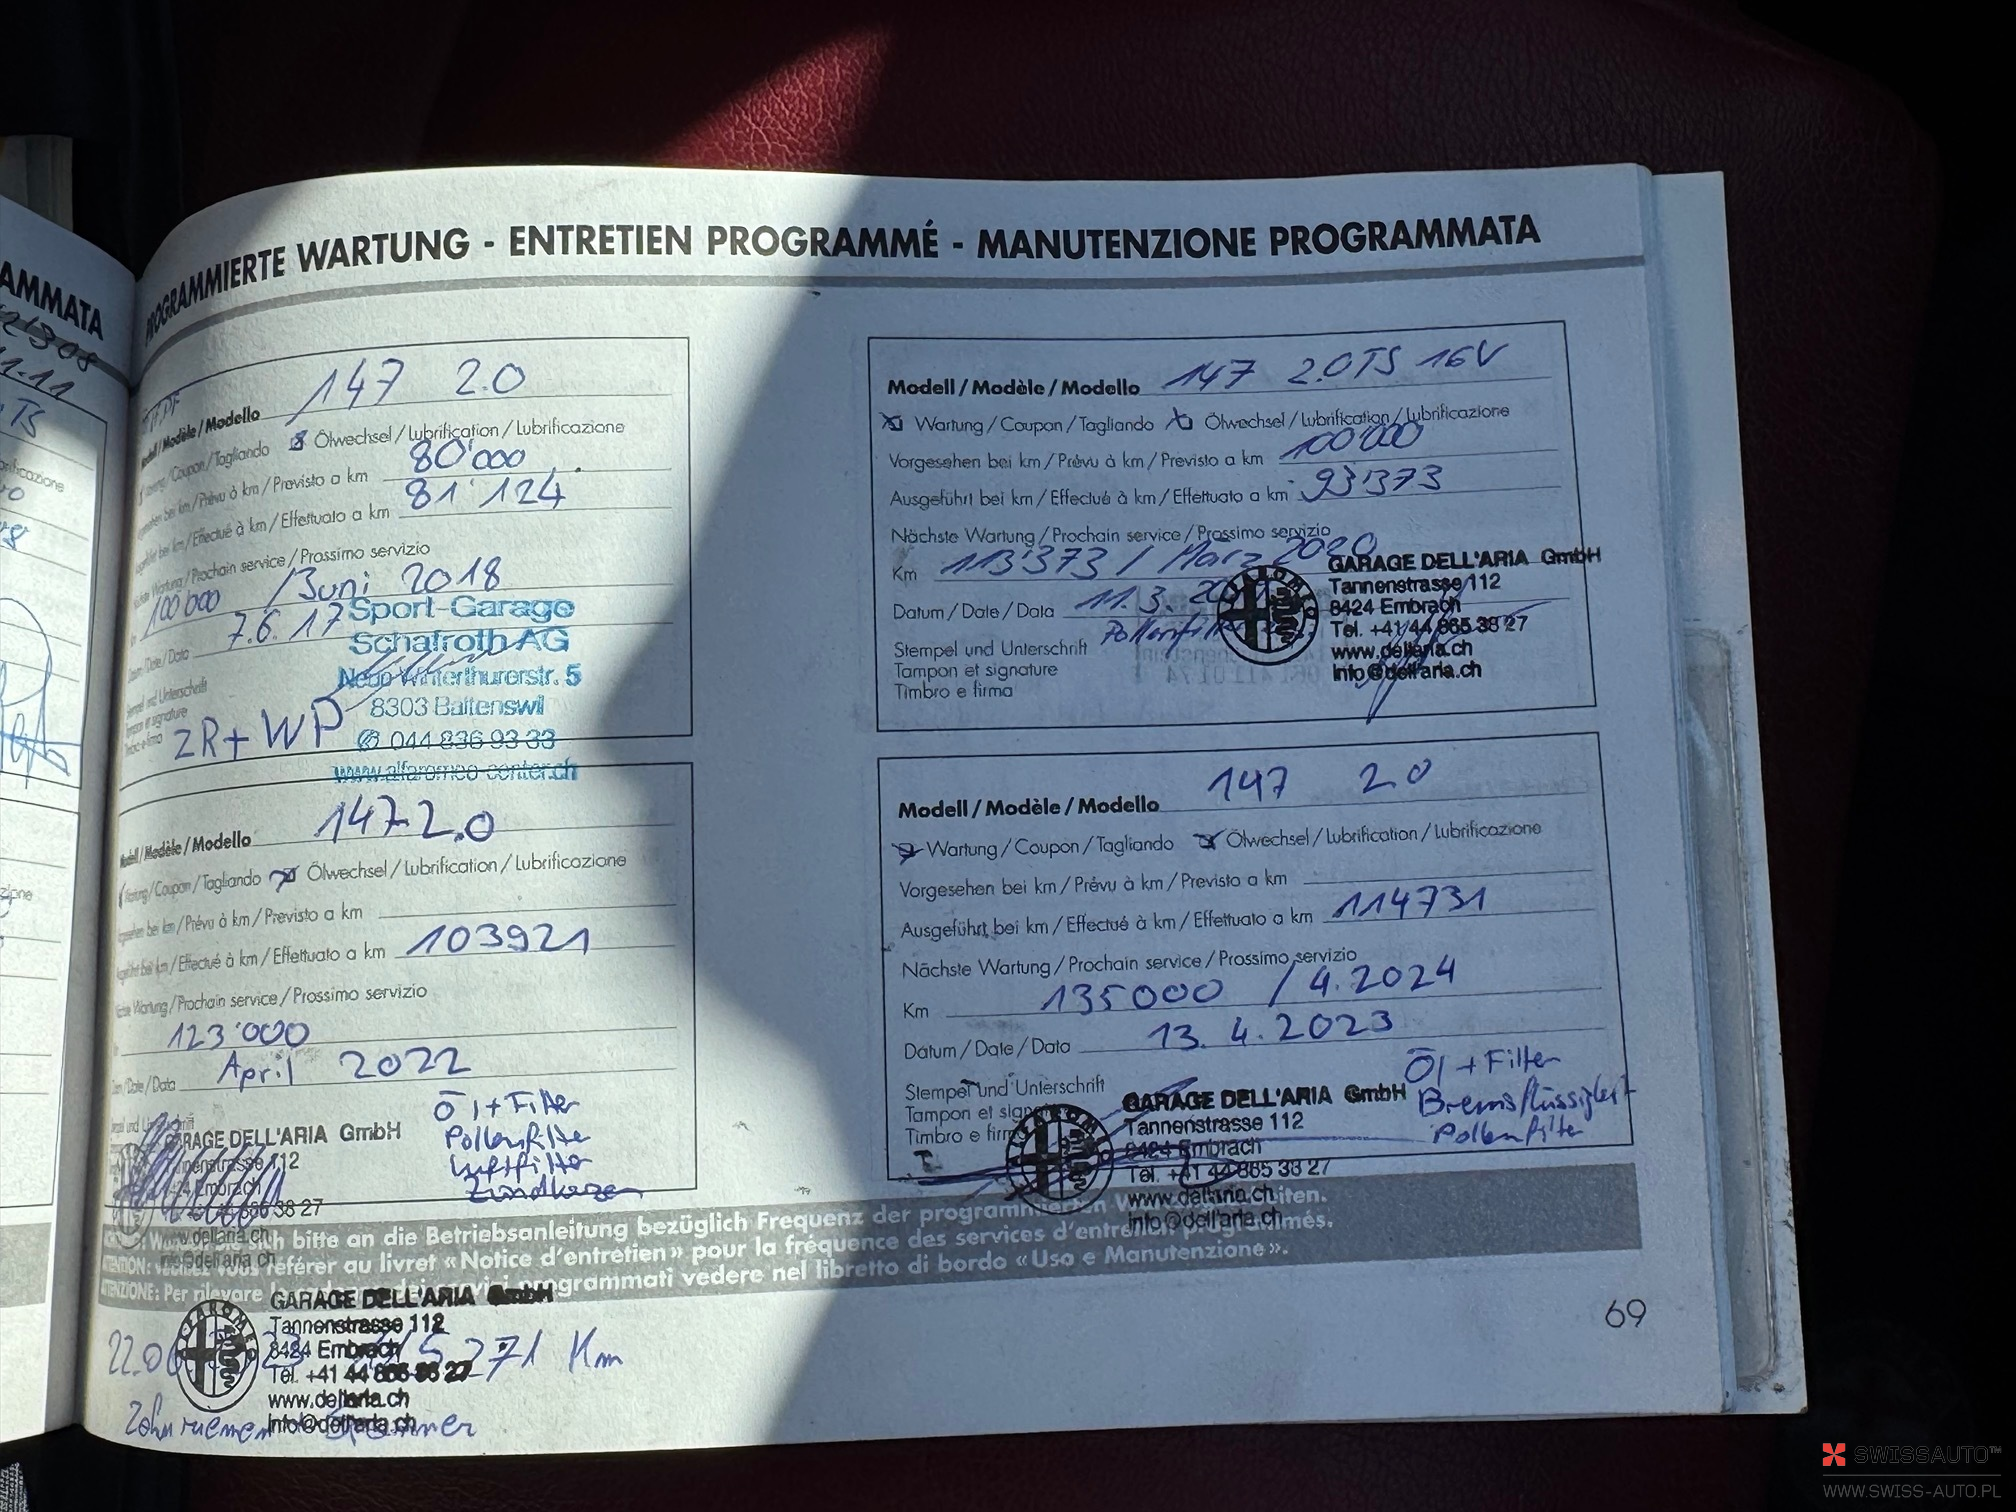 AMMATA
PROGRAMMIERTE WARTUNG - ENTRETIEN PROGRAMMÉ - MANUTENZIONE PROGRAMMATA
Modell / Modèle / Modello 147 2.0
/Coupon/Tagliando Ölwechsel / Lubrification / Lubrificazione
/Prévu à km / Previsto a km 80'000
/Effectué à km / Effettuato a km 81'124
Wartung / Prochain service / Prossimo servizio
100'000 / Juni 2018
/Date / Data 7.6.17
Sport-Garage
Schafroth AG
Neue Winterthurerstr. 5
8303 Baltenswil
044 836 93 33
www.alfaromeo-center.ch
ZR + WP
Modell / Modèle / Modello 147 2.0
Wartung / Coupon / Tagliando Ölwechsel / Lubrification / Lubrificazione
/Prévu à km / Previsto a km
/Effectué à km / Effettuato a km 103921
Wartung / Prochain service / Prossimo servizio
123'000
/Date / Data April 2022
GARAGE DELL'ARIA GmbH
Öl + Filter
Pollenfilter
Luftfilter
Zündkerzen
Modell / Modèle / Modello 147 2.0TS 16V
Wartung / Coupon / Tagliando Ölwechsel / Lubrification / Lubrificazione
Vorgesehen bei km / Prévu à km / Previsto a km 100'000
Ausgeführt bei km / Effectué à km / Effettuato a km 93'373
Nächste Wartung / Prochain service / Prossimo servizio
Km 113'373 / März 2020
Datum / Date / Data 11.3.
Stempel und Unterschrift
Tampon et signature
Timbro e firma
GARAGE DELL'ARIA GmbH
Tannenstrasse 112
8424 Embrach
Tel. +41 44 865 38 27
www.dellaria.ch
info@dell'aria.ch
Modell / Modèle / Modello 147 2.0
Wartung / Coupon / Tagliando Ölwechsel / Lubrification / Lubrificazione
Vorgesehen bei km / Prévu à km / Previsto a km
Ausgeführt bei km / Effectué à km / Effettuato a km 114731
Nächste Wartung / Prochain service / Prossimo servizio
Km 135000 / 4.2024
Datum / Date / Data 13.4.2023
Stempel und Unterschrift
Tampon et
Timbro e firma
GARAGE DELL'ARIA GmbH
Tannenstrasse 112
8424 Embrach
Tel. +41 44 865 38 27
www.dellaria.ch
info@dell'aria.ch
Öl + Filter
Bremsflüssigkeit
Pollenfilter
bitte an die Betriebsanleitung bezüglich Frequenz der
référer au livret «Notice d'entretien» pour la fréquence des services d'entretien programmés.
ATTENZIONE: Per rilevare programmati vedere nel libretto di bordo «Uso e Manutenzione».
GARAGE DELL'ARIA GmbH
Tannenstrasse 112
8424 Embrach
Tel. +41 44 865 38 27
www.dellaria.ch
info@dell'aria.ch
271 Km
Zahnriemen
69
SWISSAUTO™
WWW.SWISS-AUTO.PL